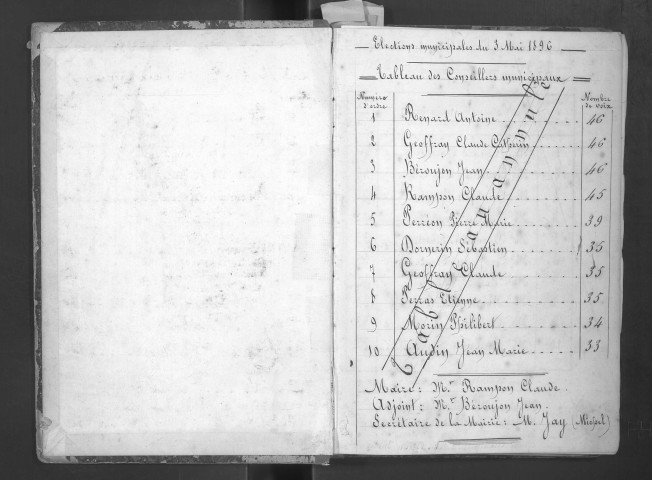 Elections municipales du 3 Mai 1896
Tableau des Conseillers municipaux
Numéro d'ordre
Nombre de voix
1 Renard Antoine 46
2 Geoffray Claude Catherin 46
3 Béroujon Jean 46
4 Rampon Claude 45
5 Perréon Pierre Marie 39
6 Dornerin Sébastien 35
7 Geoffray Claude 35
8 Perras Etienne 35
9 Morin Philibert 34
10 Audin Jean Marie 33
Tableau annulé
Maire: Mr Rampon Claude
Adjoint: Mr Béroujon Jean
Secrétaire de la Mairie: M. Jay